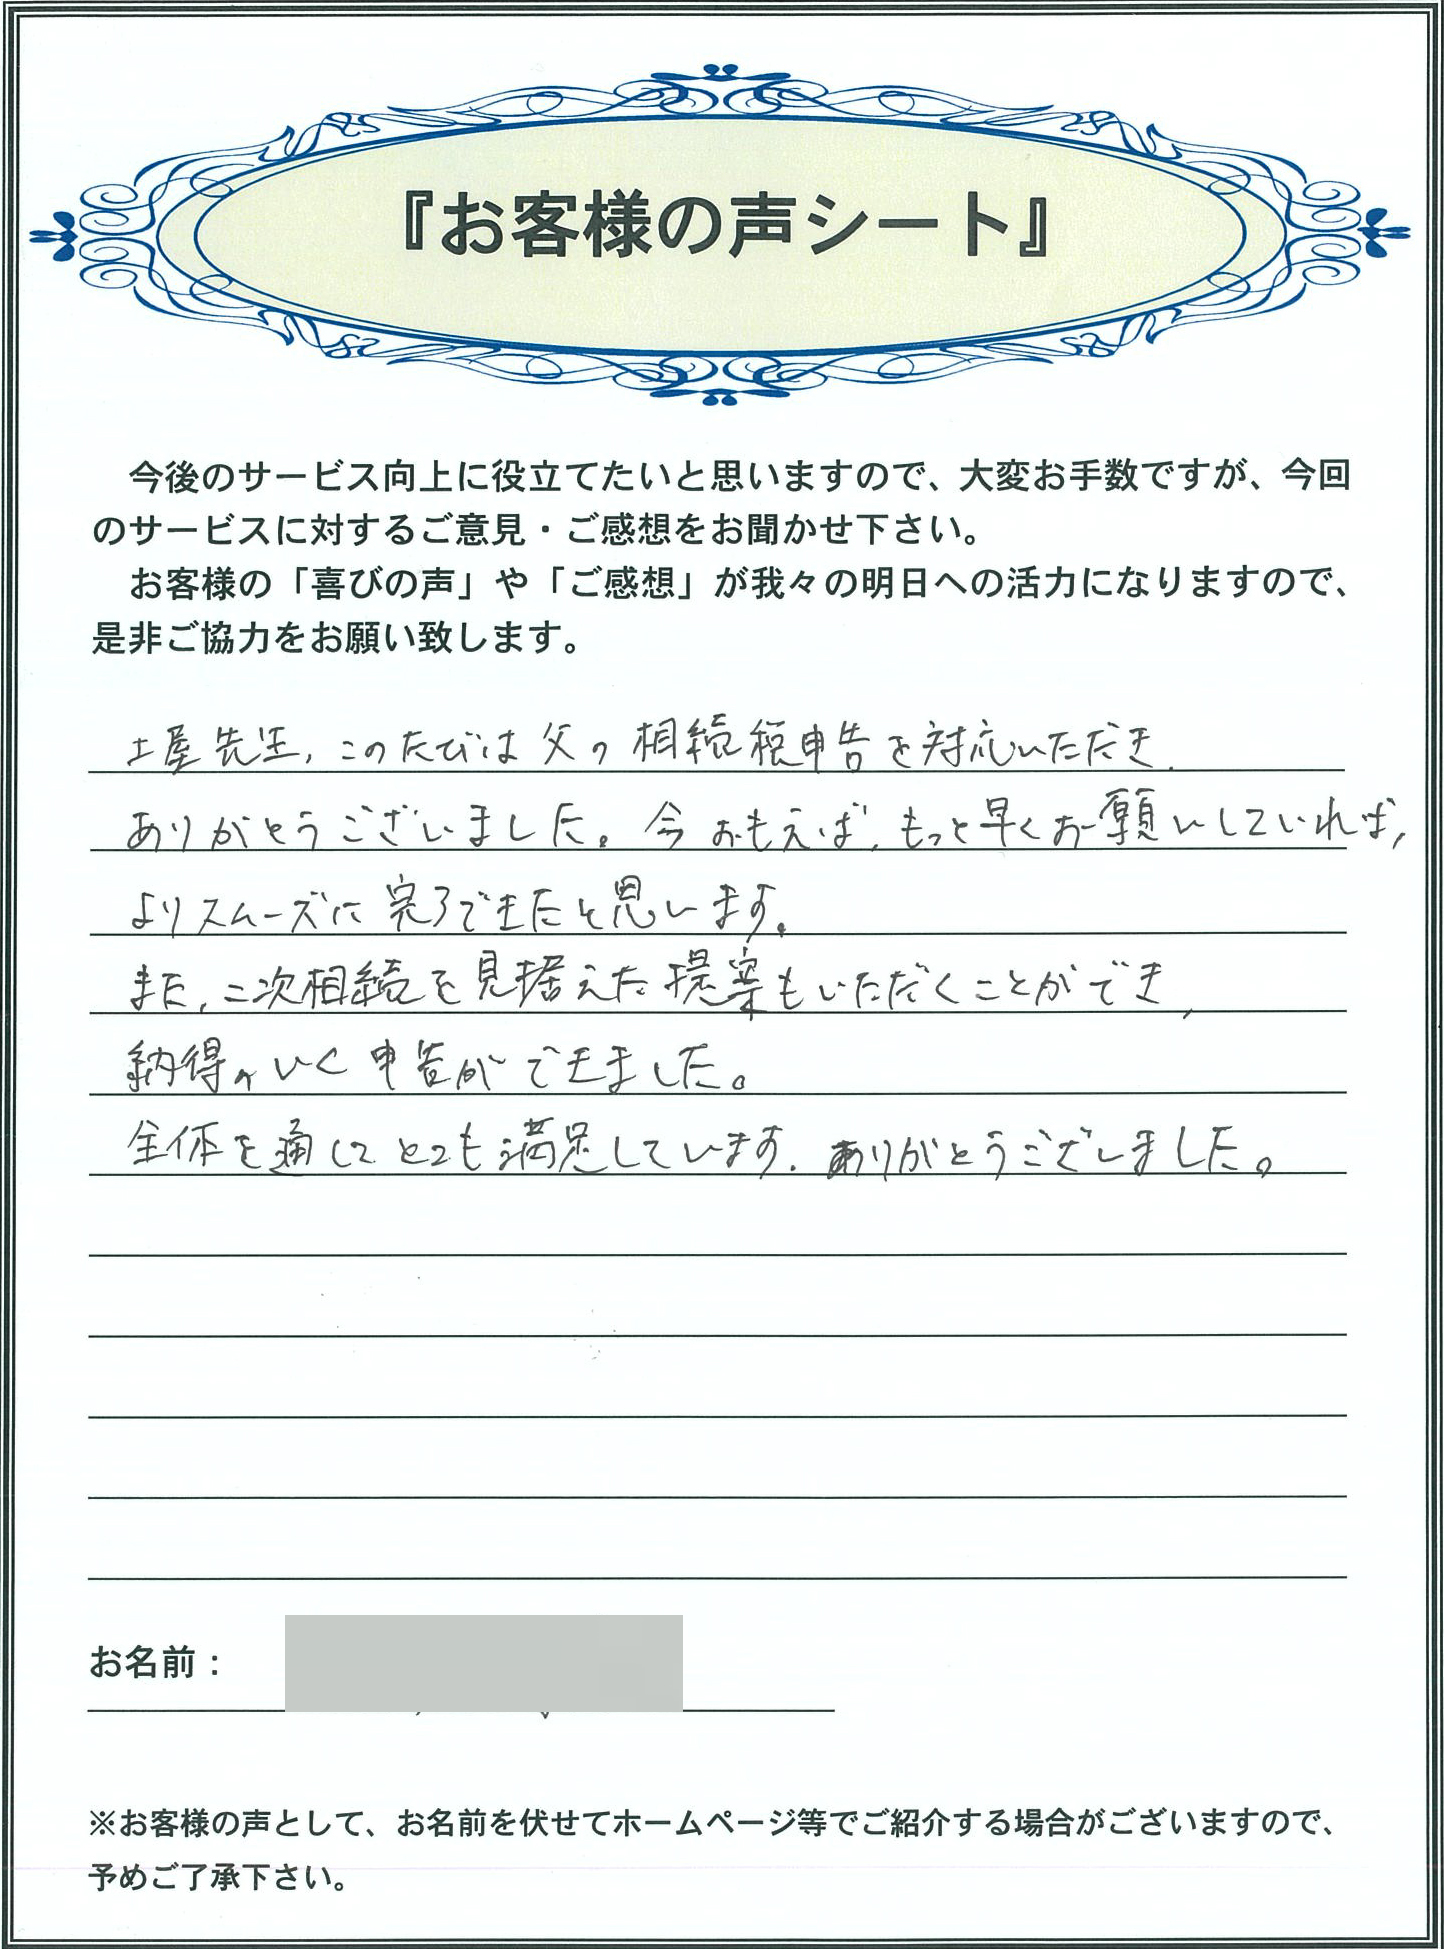 『お客様の声シート』
今後のサービス向上に役立てたいと思いますので、大変お手数ですが、今回
のサービスに対するご意見・ご感想をお聞かせ下さい。
お客様の「喜びの声」や「ご感想」が我々の明日への活力になりますので、
是非ご協力をお願い致します。
土屋先生, このたびは父の相続税申告を対応いただき,
ありがとうございました。今おもえば, もっと早くお願いしていれば,
よりスムーズに完了できたと思います。
また, 二次相続を見据えた提案もいただくことができ,
納得のいく申告ができました。
全体を通してとても満足しています. ありがとうございました。
お名前：
※お客様の声として、お名前を伏せてホームページ等でご紹介する場合がございますので、
予めご了承下さい。